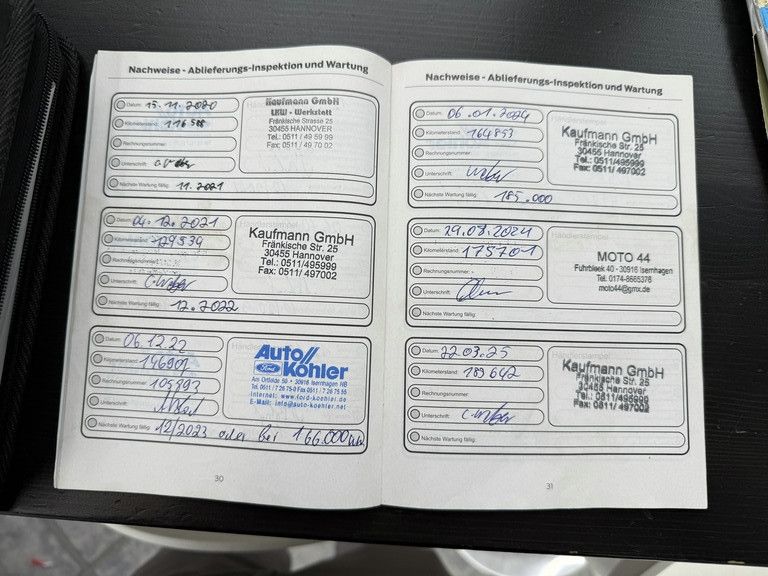 Nachweise - Ablieferungs-Inspektion und Wartung
Datum: 15.11.2020
Kilometerstand:
Rechnungsnummer:
Unterschrift:
Nächste Wartung fällig: 11.2021
Kaufmann GmbH
LKW - Werkstatt
Fränkische Strasse 25
30455 HANNOVER
Tel.: 0511 / 49 59 99
Fax: 0511 / 49 70 02
Datum: 04.12.2021
Kilometerstand: 129539
Rechnungsnummer:
Unterschrift:
Nächste Wartung fällig: 12.2022
Kaufmann GmbH
Fränkische Str. 25
30455 Hannover
Tel.: 0511/495999
Fax: 0511/ 497002
Datum: 06.12.22
Kilometerstand: 146907
Rechnungsnummer: 105993
Unterschrift:
Nächste Wartung fällig: 12/2023 oder bei 166.000 km
Auto
Ford Köhler
Am Ortfelde 50 • 30916 Isernhagen NB
Internet: www.ford-koehler.de
E-Mail: info@auto-koehler.net
30
Nachweise - Ablieferungs-Inspektion und Wartung
Datum: 06.01.2024
Kilometerstand: 164853
Rechnungsnummer:
Unterschrift:
Nächste Wartung fällig: 185.000
Kaufmann GmbH
Fränkische Str. 25
30455 Hannover
Tel.: 0511/495999
Fax: 0511/ 497002
Datum: 29.08.2024
Kilometerstand: 175701
Rechnungsnummer: -
Unterschrift:
Nächste Wartung fällig:
Händlerstempel
MOTO 44
Fuhrbleek 40 - 30916 Isernhagen
Tel.: 0174-8665376
moto44@gmx.de
Datum: 22.03.25
Kilometerstand: 189642
Rechnungsnummer:
Unterschrift:
Nächste Wartung fällig:
Händlerstempel
Kaufmann GmbH
Fränkische Str. 25
30455 Hannover
Tel.: 0511/495999
Fax: 0511/ 497002
31